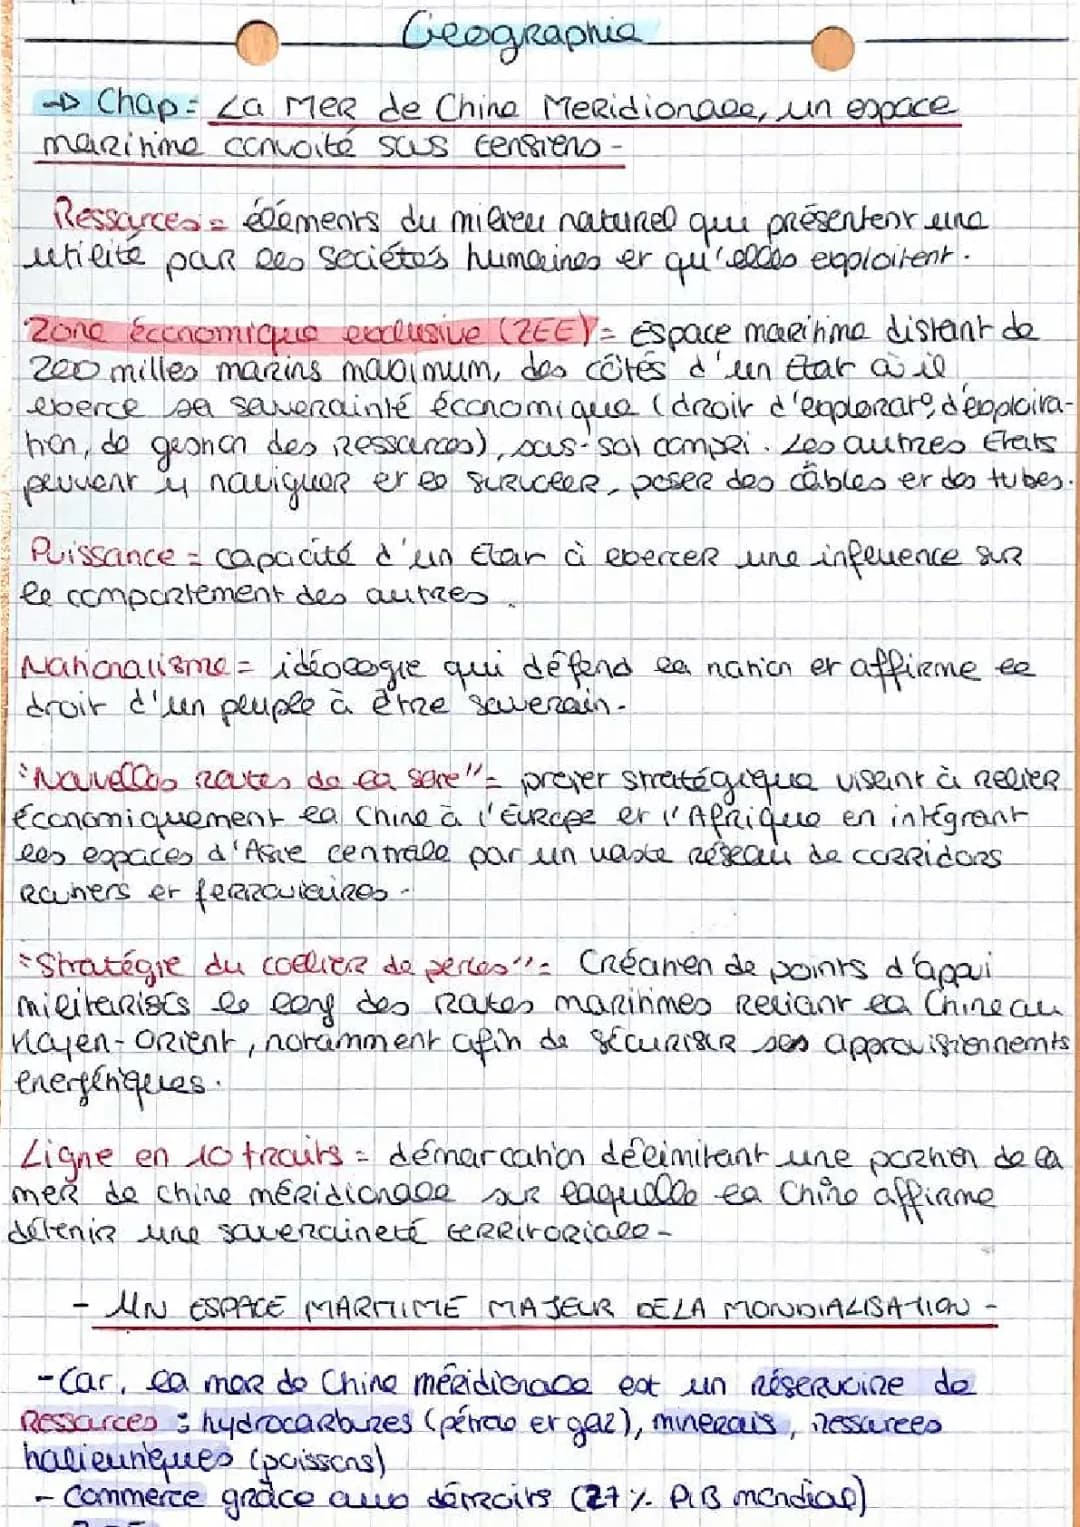 Geographie
→ Chap = La MER de Chine MERidionale, un espace
maritime convoité sous tensions -
Ressources = éléments du milieu naturel qui présentent une
utilité par les sociétés humaines et qu'elles exploitent.
Zone économique exclusive (ZEE) = espace maritime distant de
200 milles marins maximum, des côtés d'un Etat où il
exerce sa souverainté économique (droit d'explorare, d'exploita-
tion, de gestion des ressources), sous-sol compri. Les autres Etats
peuvent y naviguer et le survoler, poser des câbles et des tubes.
Puissance = capacité d'un Etat à exercer une influence sur
le comportement des autres.
Nationalisme = idéologie qui défend la nation et affirme le
droit d'un peuple à être souverain.
"Nouvelles routes de la soie" = projet stratégique visant à relier
économiquement la Chine à l'Europe et l'Afrique en intégrant
les espaces d'Asie centrale par un vaste réseau de corridors
routiers et ferroviaires.
"Stratégie du collier de perles" = Création de points d'appui
militarisés le long des routes maritimes reliant la Chine au
Moyen-Orient, notamment afin de sécuriser ses approvisionnemts
energétiques.
Ligne en 10 traits = démarcation délimitant une portion de la
mer de chine méridionale sur laquelle la Chine affirme
détenir une souveraineté territoriale -
- UN ESPACE MARITIME MAJEUR DE LA MONDIALISATION -
- Car, la mer de Chine méridionale est un réservoire de
Ressources : hydrocarbures (pétrole et gaz), minerais, ressources
halieutiques (poissons)
- Commerce grâce aux détroits (27 % PIB mondial)